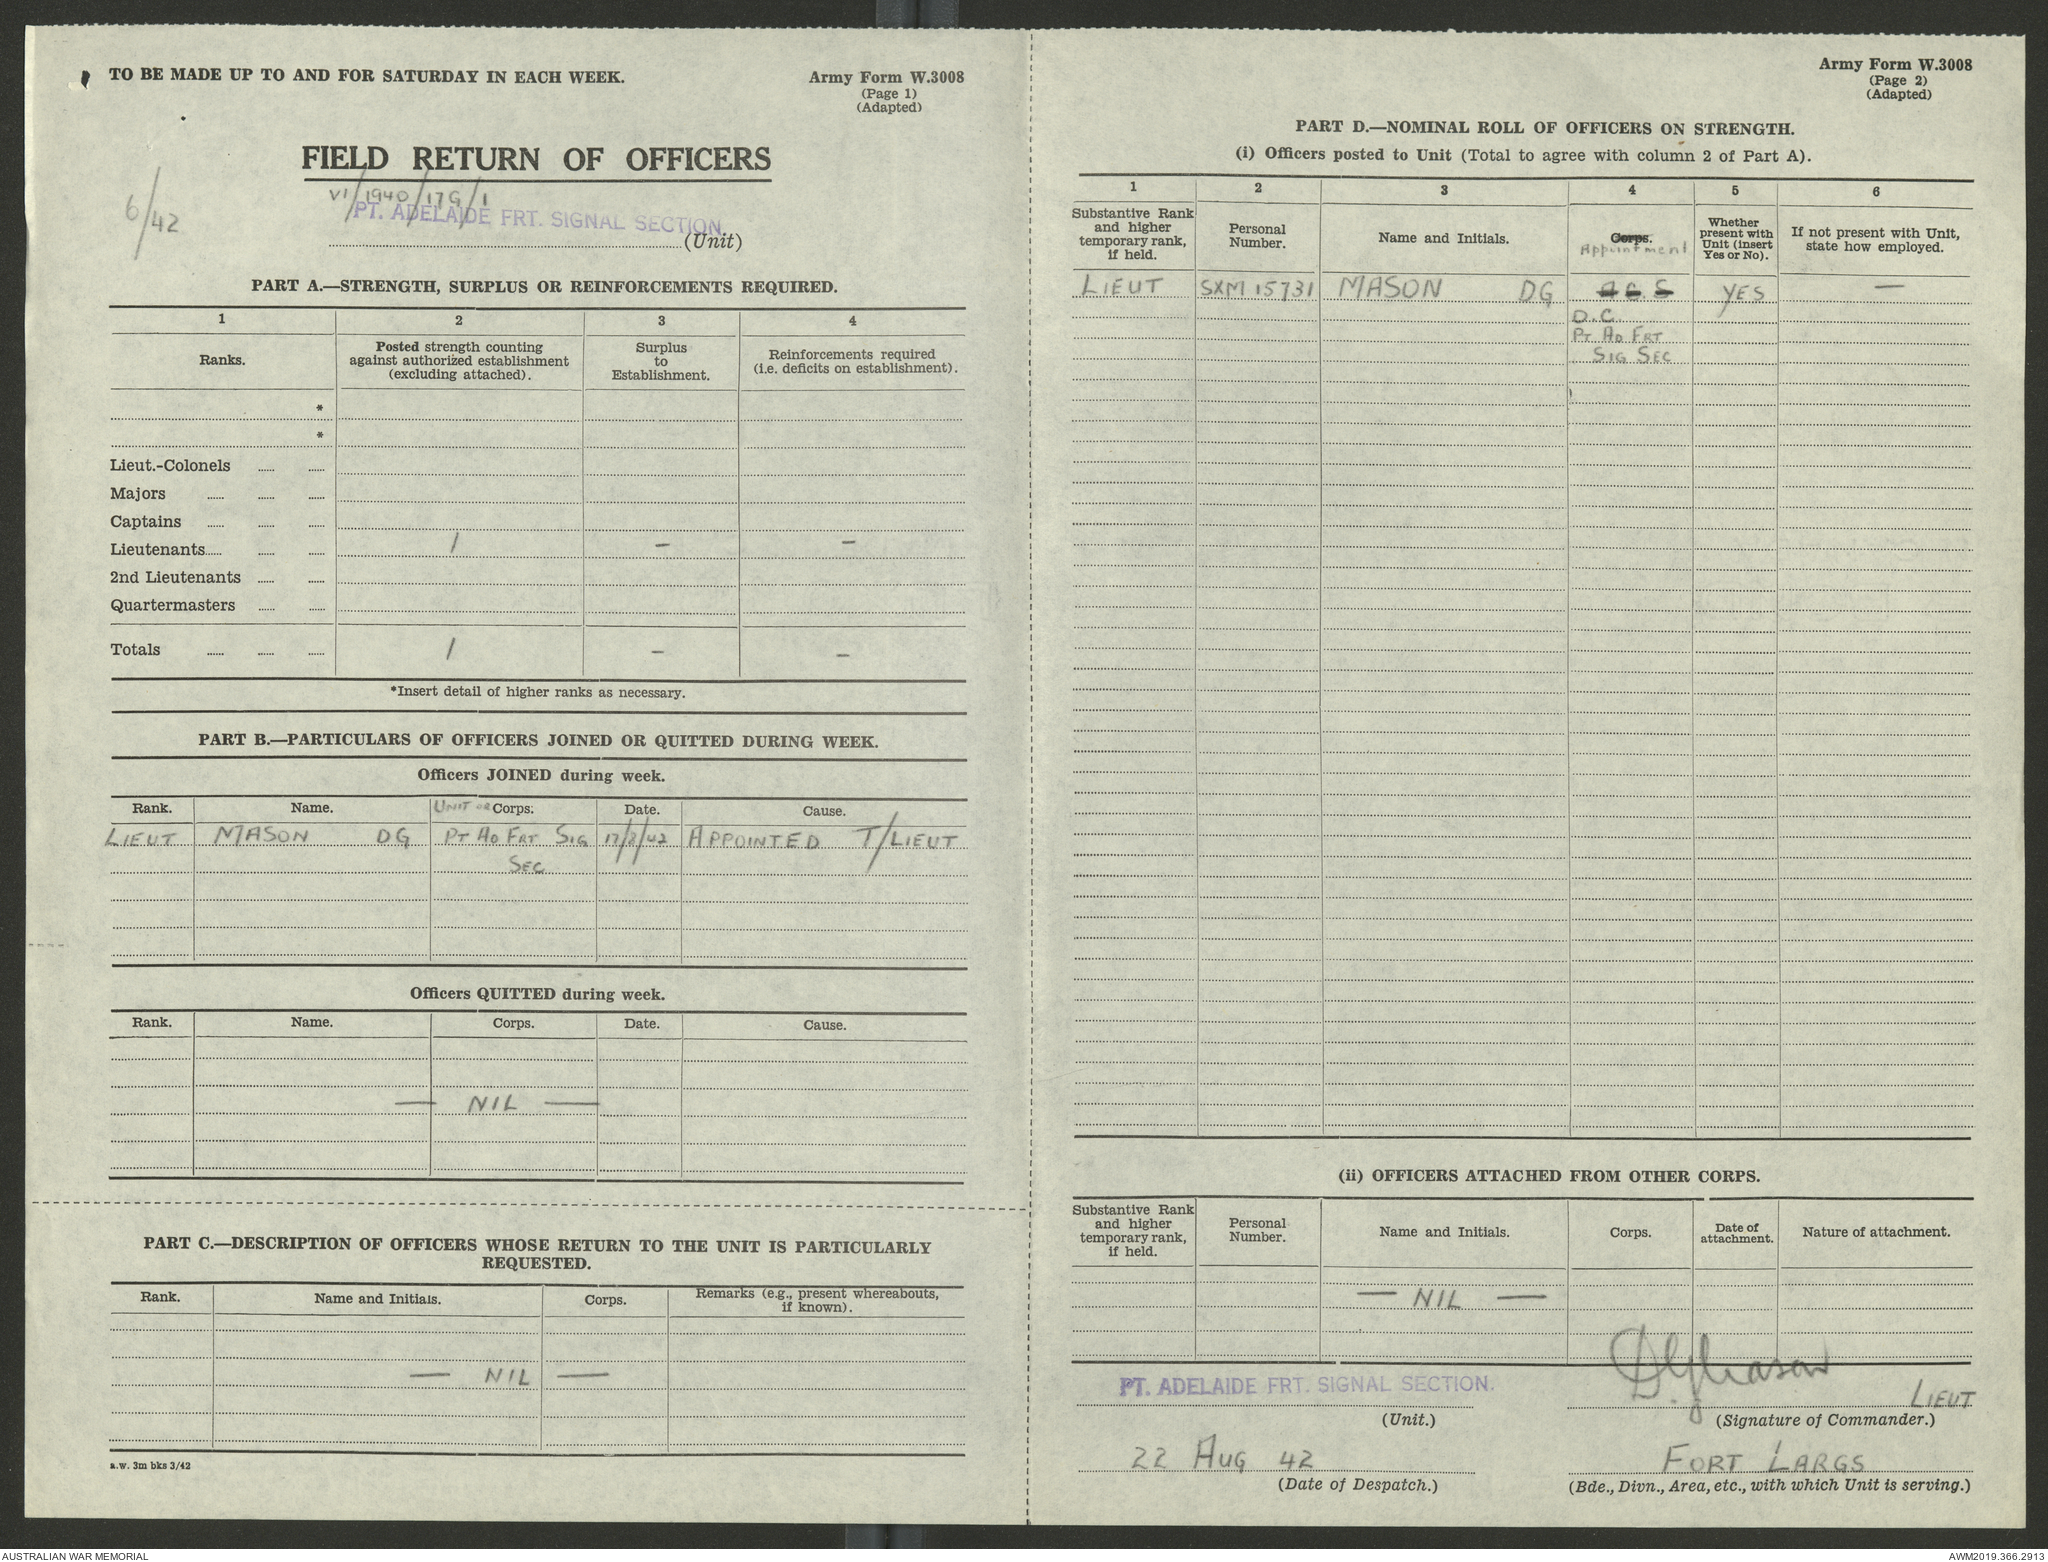 TO BE MADE UP TO AND FOR SATURDAY IN EACH WEEK.
Army Form W.3008
(Page 1)
(Adapted)
FIELD RETURN OF OFFICERS
6/42
VI/1940/17G/1
PT. ADELAIDE FRT. SIGNAL SECTION.
(Unit)
PART A.—STRENGTH, SURPLUS OR REINFORCEMENTS REQUIRED.
1 2 3 4
Ranks.
Posted strength counting against authorized establishment (excluding attached).
Surplus to Establishment.
Reinforcements required (i.e. deficits on establishment).
*
*
Lieut.-Colonels
Majors
Captains
Lieutenants 1 — —
2nd Lieutenants
Quartermasters
Totals 1 — —
*Insert detail of higher ranks as necessary.
PART B.—PARTICULARS OF OFFICERS JOINED OR QUITTED DURING WEEK.
Officers JOINED during week.
Rank. Name. UNIT OR Corps. Date. Cause.
LIEUT MASON DG PT AD FRT SIG 17/8/42 APPOINTED T/LIEUT
SEC
Officers QUITTED during week.
Rank. Name. Corps. Date. Cause.
— NIL —
PART C.—DESCRIPTION OF OFFICERS WHOSE RETURN TO THE UNIT IS PARTICULARLY
REQUESTED.
Rank. Name and Initials. Corps. Remarks (e.g., present whereabouts, if known).
— NIL —
a.w. 3m bks 3/42
Army Form W.3008
(Page 2)
(Adapted)
PART D.—NOMINAL ROLL OF OFFICERS ON STRENGTH.
(i) Officers posted to Unit (Total to agree with column 2 of Part A).
1 2 3 4 5 6
Substantive Rank and higher temporary rank, if held.
Personal Number.
Name and Initials.
Corps.
Appointment
Whether present with Unit (insert Yes or No).
If not present with Unit, state how employed.
LIEUT SXM 15731 MASON DG YES —
O.C.
PT AD FRT
SIG SEC
(ii) OFFICERS ATTACHED FROM OTHER CORPS.
Substantive Rank and higher temporary rank, if held.
Personal Number.
Name and Initials.
Corps.
Date of attachment.
Nature of attachment.
— NIL —
PT. ADELAIDE FRT. SIGNAL SECTION.
(Unit.)
DGMason
LIEUT
(Signature of Commander.)
22 AUG 42
(Date of Despatch.)
FORT LARGS
(Bde., Divn., Area, etc., with which Unit is serving.)
AUSTRALIAN WAR MEMORIAL
AWM2019.366.2913